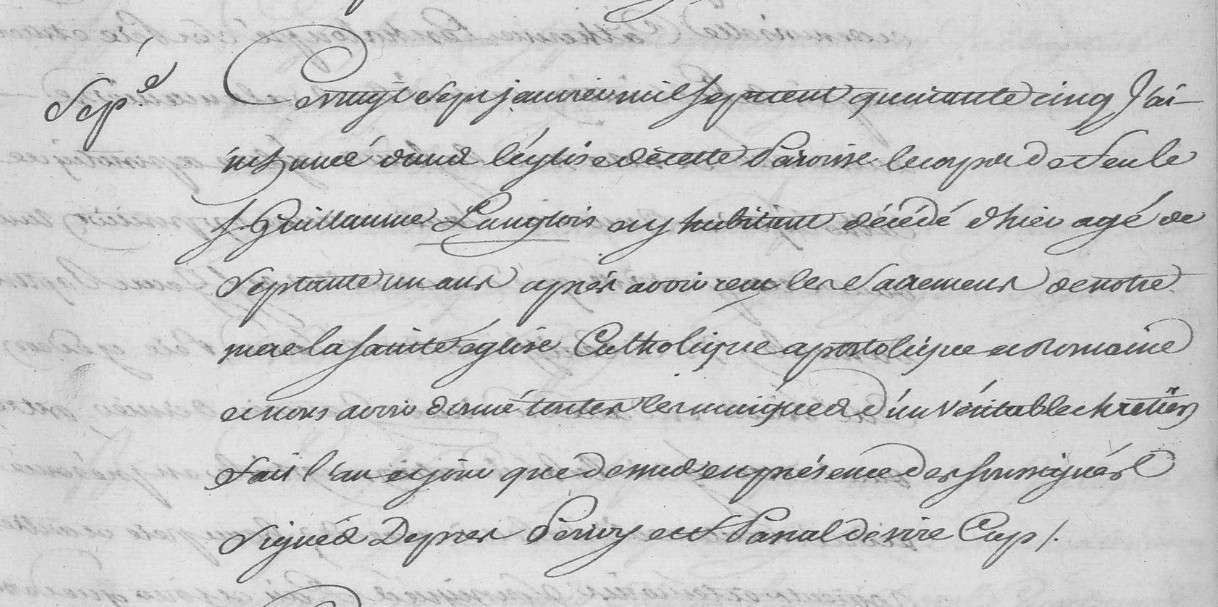 Sep.re
Ce vingt sept janvier mil sept cent quarante cinq J'ai
inhumé dans l'église de cette Paroisse le corps de feu le
S. Guillaume Langlois ... habitant décédé d'hier agé de
Septante un ans après avoir reçu les Sacremens de notre
mere la sainte église Catholique apostolique et romaine
et nous avoir donné toutes les marques d'un véritable chretien
fait l'an et jour que dessus en présence des soussignés
Signés Depres ... et f. Panal de vire Cap /.